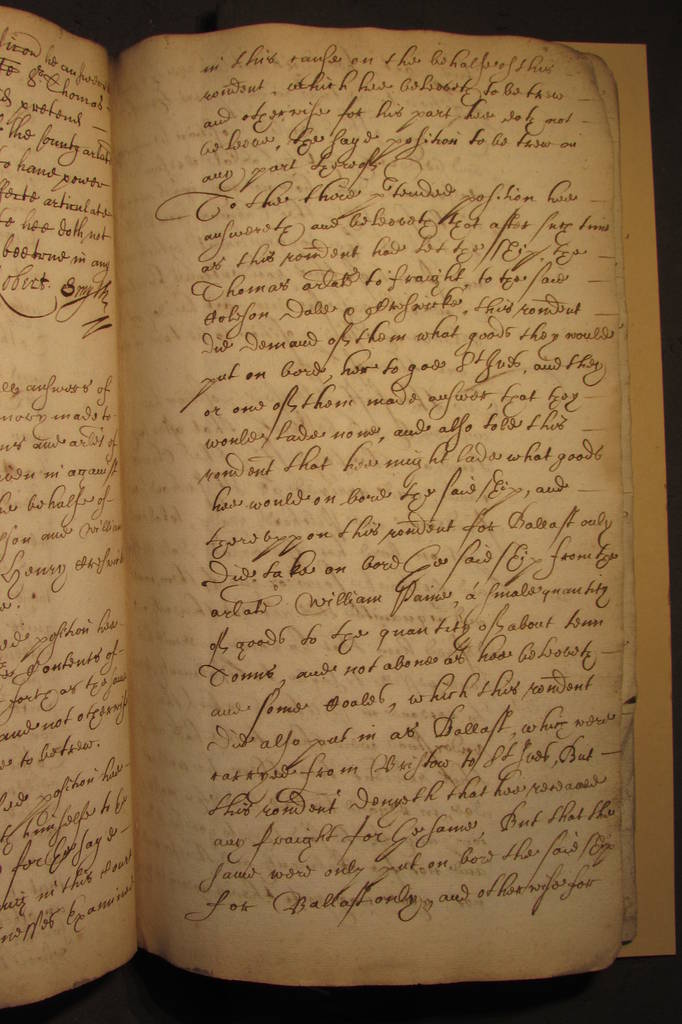 he answere
Thomas
pretend
the County arlat
to haue power
articulate
to hee doth not
bee true in any
Robert Smyth
answers of
made to
and arlés of
giuen in against
the behalfe of
and William
Henry
position hee
Contents of
forth as the said
and not otherwise
to be trew.
position hee
himselfe to be
for the sayd
in this Court
witnesses Examined
in this cause on the behalfe of this
rondent, which hee beleeveth to be trew
and otherwise for his part hee doth not
beleeve, the sayd position to be trew in
any part thereof.
To the third ptended position hee
answereth and beleeveth that after such time
as this rondent had let the ship the
Thomas arlate to fraight, to the said
Hobson Dale & Kreswicke, this rondent
did demand of them what goods they would
put on bord her to goe St Ives, and they
or one of them made answer, that they
would lade none, and also told this
rondent that hee might lade what goods
hee would on bord the said ship, and
therevppon this rondent for Ballast only
did take on bord the said ship from the
arlate William Paine, a smale quantity
of goods to the quantity of about tenn
Tonns, and not aboue as hee beleeveth
and some Coales, which this rondent
did also put in as Ballast, which were
carryed from Bristow to St Ives, But
this rondent denyeth that hee receaued
any fraight for the same, But that the
same were only put on bord the said ship
for Ballast only, and otherwise for